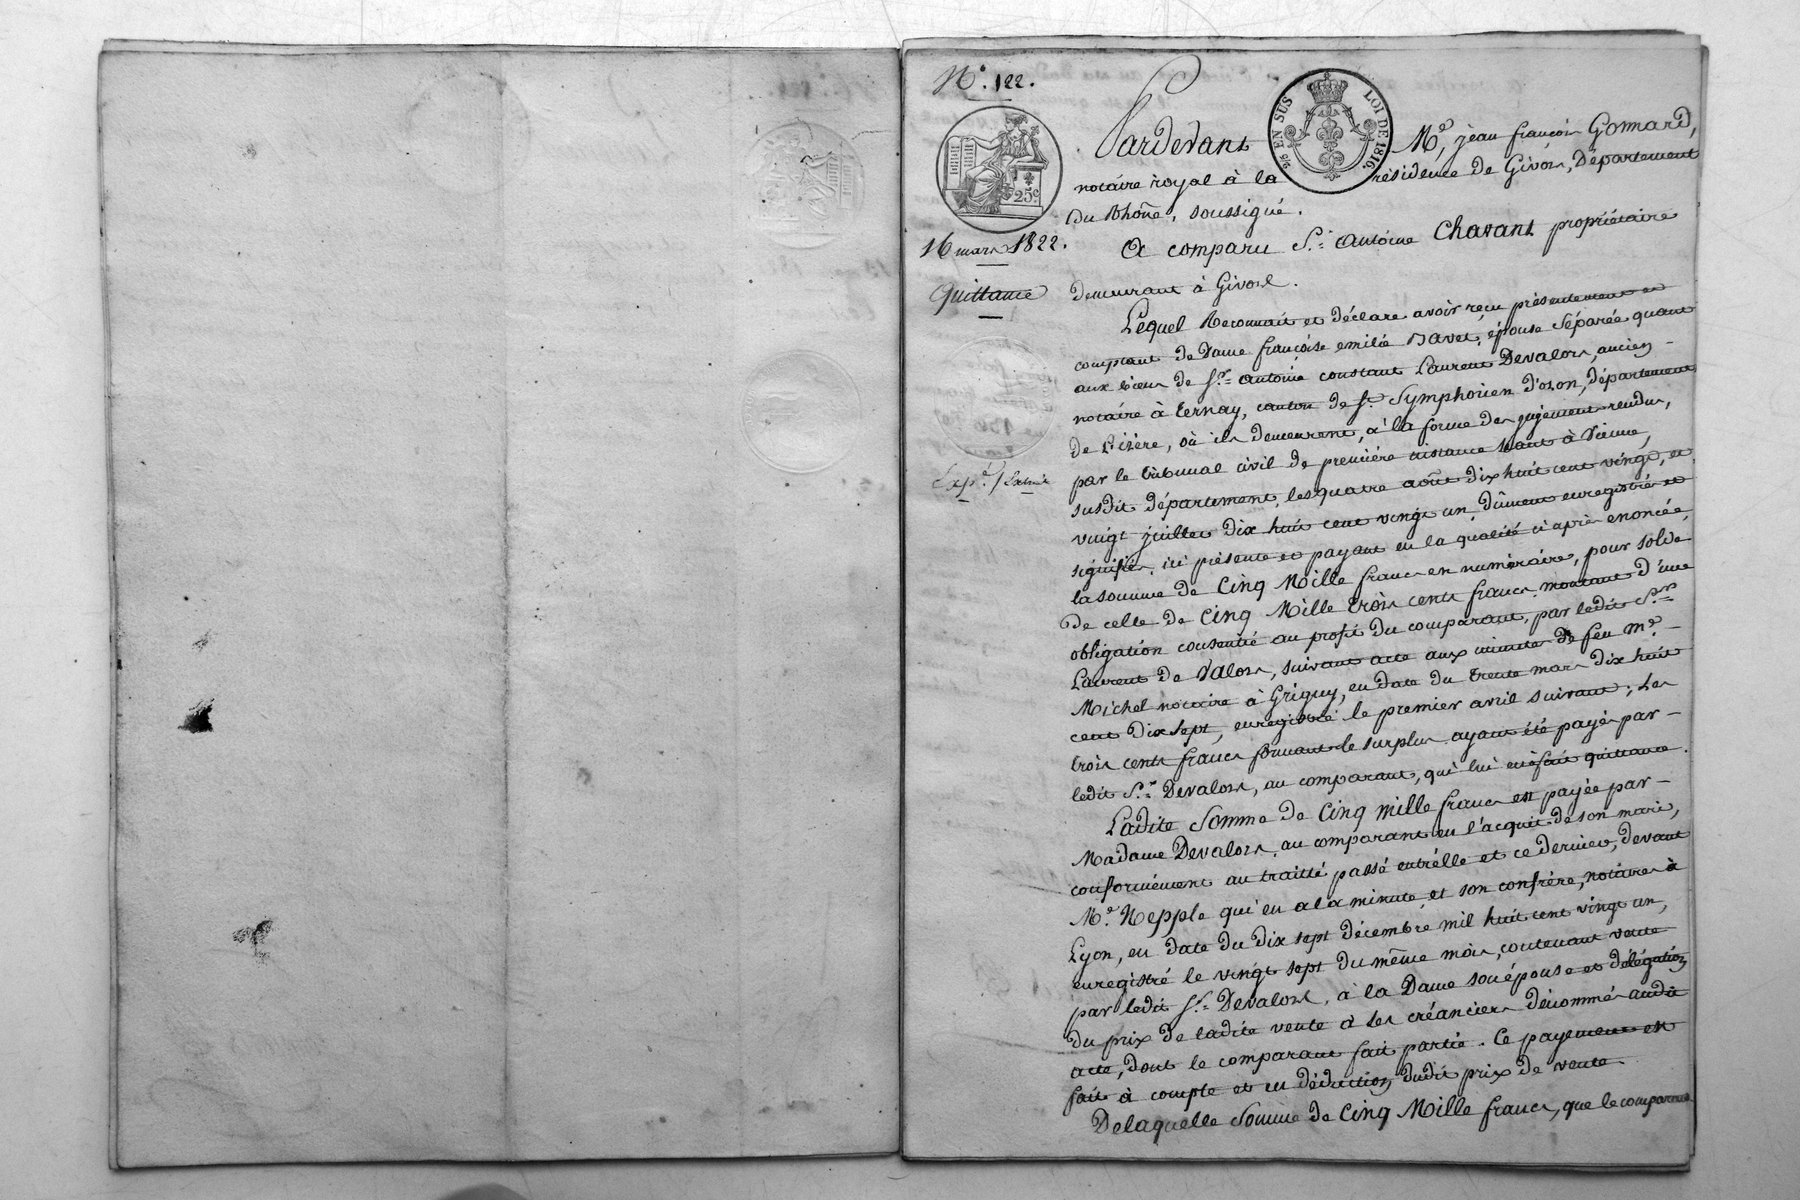 N.° 122.
25c
16 mars 1822.
Quittance
Exp.on / Extrait
Pardevant Me. jean françois Gonnard,
⅖ EN SUS LOI DE 1816.
notaire royal à la résidence de Givors, Département
du Rhône, soussigné.
A comparu Sr. Antoine Chavant propriétaire
demeurant à Givors.
Lequel Reconnait et déclare avoir reçu présentement et
comptant de Dame françoise emilie Navet, épouse séparée quant
aux biens de Sr. antoine constant Laurent Devalors, ancien
notaire à ternay, canton de St. Symphorien d'ozon, département
de L'izère, où ils demeurent, à la forme des jugements rendus,
par le tribunal civil de première instance séant à Vienne,
susdit département, les quatre août dix huit cent vingt, et
vingt juillet dix huit cent vingt un, dûment enregistrés et
signifiés, ici présente et payant en la qualité ci après enoncée,
la somme de Cinq Mille francs en numéraire, pour solde
de celle de Cinq Mille trois cents francs, montant d'une
obligation consentie au profit du comparant, par ledit Sr.
Laurent de Valors, suivant acte aux minutes de feu Me.
Michel notaire à Grigny, en date du trente mars dix huit
cent dix sept, enregistré le premier avril suivant; Les
trois cents francs formant le surplus ayant été payés par
ledit Sr. Devalors, au comparant, qui lui en a fait quittance.
Ladite Somme de Cinq mille francs est payée par
Madame Devalors, au comparant en l'acquit de son mari,
conformément au traitté passé entr'elle et ce dernier, devant
Me. Nepple qui en a la minute et son confrère, notaires à
Lyon, en date du dix sept décembre mil huit cent vingt un,
enregistré le vingt sept du même mois, contenant vente
par ledit Sr. Devalors, à la Dame son épouse et délégation
du prix de ladite vente à ses créanciers dénommés audit
acte, dont le comparant fait partie. Ce payement est
fait à compte et en déduction dudit prix de vente
Delaquelle Somme de Cinq Mille francs, que le comparant